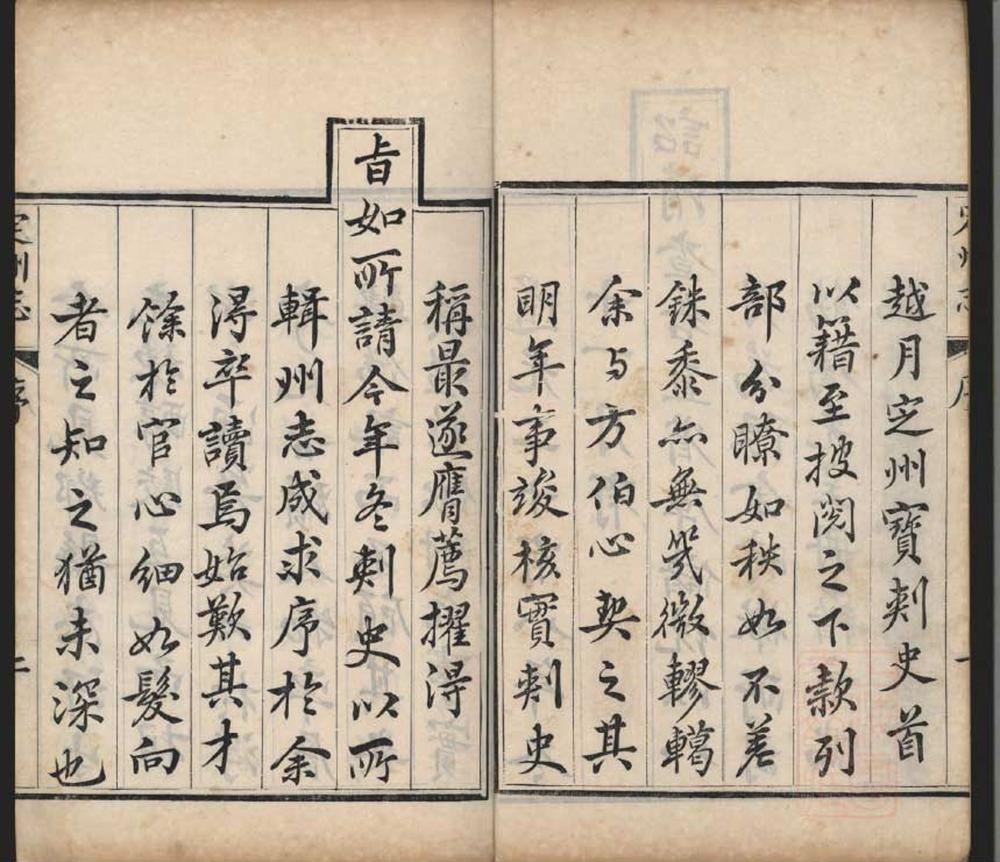 越月定州寶刺史首
以籍至披閱之下款列
部分瞭如秩如不差
銖黍亦無幾微轇轕
余与方伯心契之其
明年事竣核實刺史
稱最遂膺薦擢得
旨如所請今年冬刺史以所
輯州志成求序於余
得卒讀焉始歎其才
餘於官心細如髮向
者之知之猶未深也
定州志
序
二